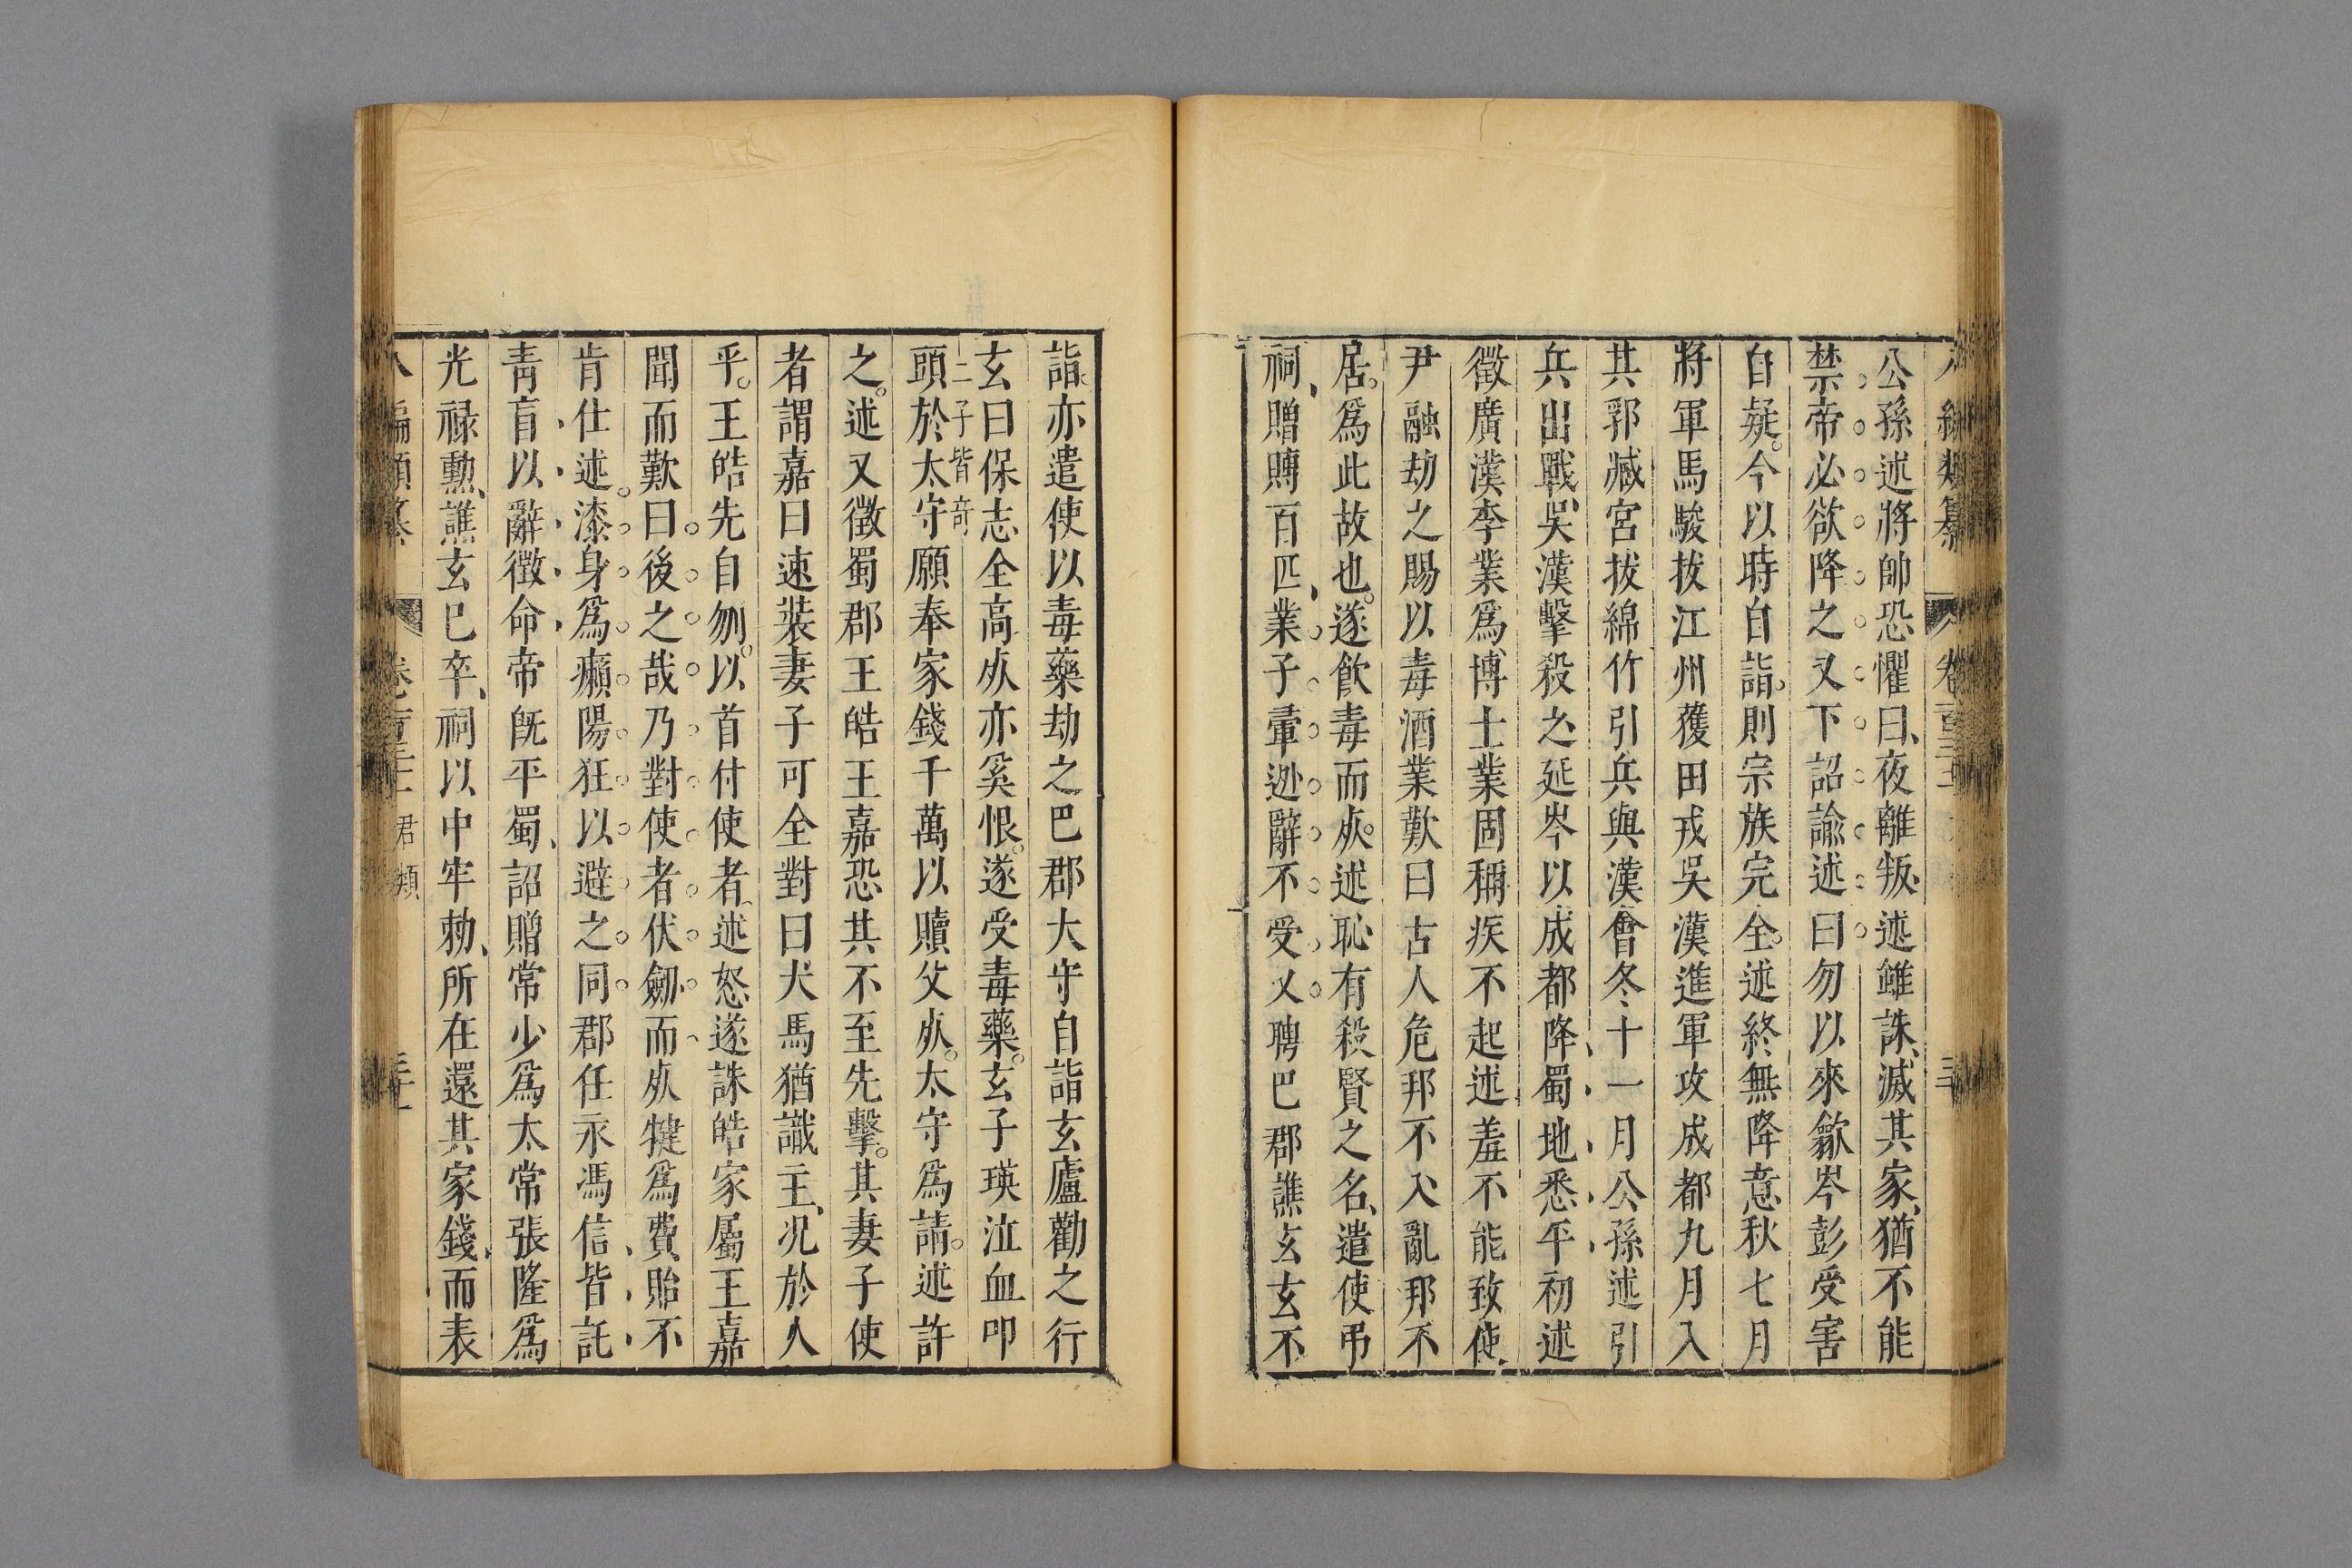 公孫述將帥恐懼曰夜離叛述雖誅滅其家猶不能
禁帝必欲降之又下詔諭述曰勿以來歙岑彭受害
自疑今以時自詣則宗族完全述終無降意秋七月
將軍馬駿拔江州獲田戎吳漢進軍攻成都九月入
其郛臧宮拔綿竹引兵與漢會冬十一月公孫述引
兵出戰吳漢擊殺之延岑以成都降蜀地悉平初述
徵廣漢李業為博士業固稱疾不起述羞不能致使
尹融劫之賜以毒酒業歎曰古人危邦不入亂邦不
居爲此故也遂飲毒而㱙述恥有殺賢之名遣使吊
祠贈賻百匹業子翬逃辭不受又聘巴郡譙玄玄不
詣亦遣使以毒藥劫之巴郡大守自詣玄廬勸之行
玄曰保志全高㱙亦奚恨遂受毒藥玄子瑛泣血叩
二子皆奇
頭於太守願奉家錢千萬以贖父㱙太守爲請述許
之述又徵蜀郡王皓王嘉恐其不至先擊其妻子使
者謂嘉曰速裝妻子可全對曰犬馬猶識主况於人
乎王皓先自刎以首付使者述怒遂誅皓家屬王嘉
聞而歎曰後之哉乃對使者伏劒而㱙犍爲費貽不
肯仕述漆身爲癩陽狂以避之同郡任永馮信皆託
靑盲以辭徵命帝既平蜀詔贈常少爲太常張隆爲
光祿勲譙玄已卒祠以中牢勑所在還其家錢而表